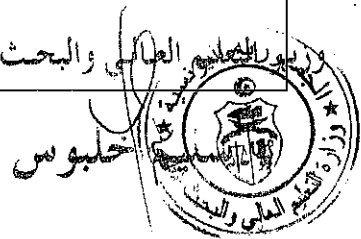 وزير التعليم العالي والبحث
سليم خلبوس
وزارة التعليم العالي والبحث